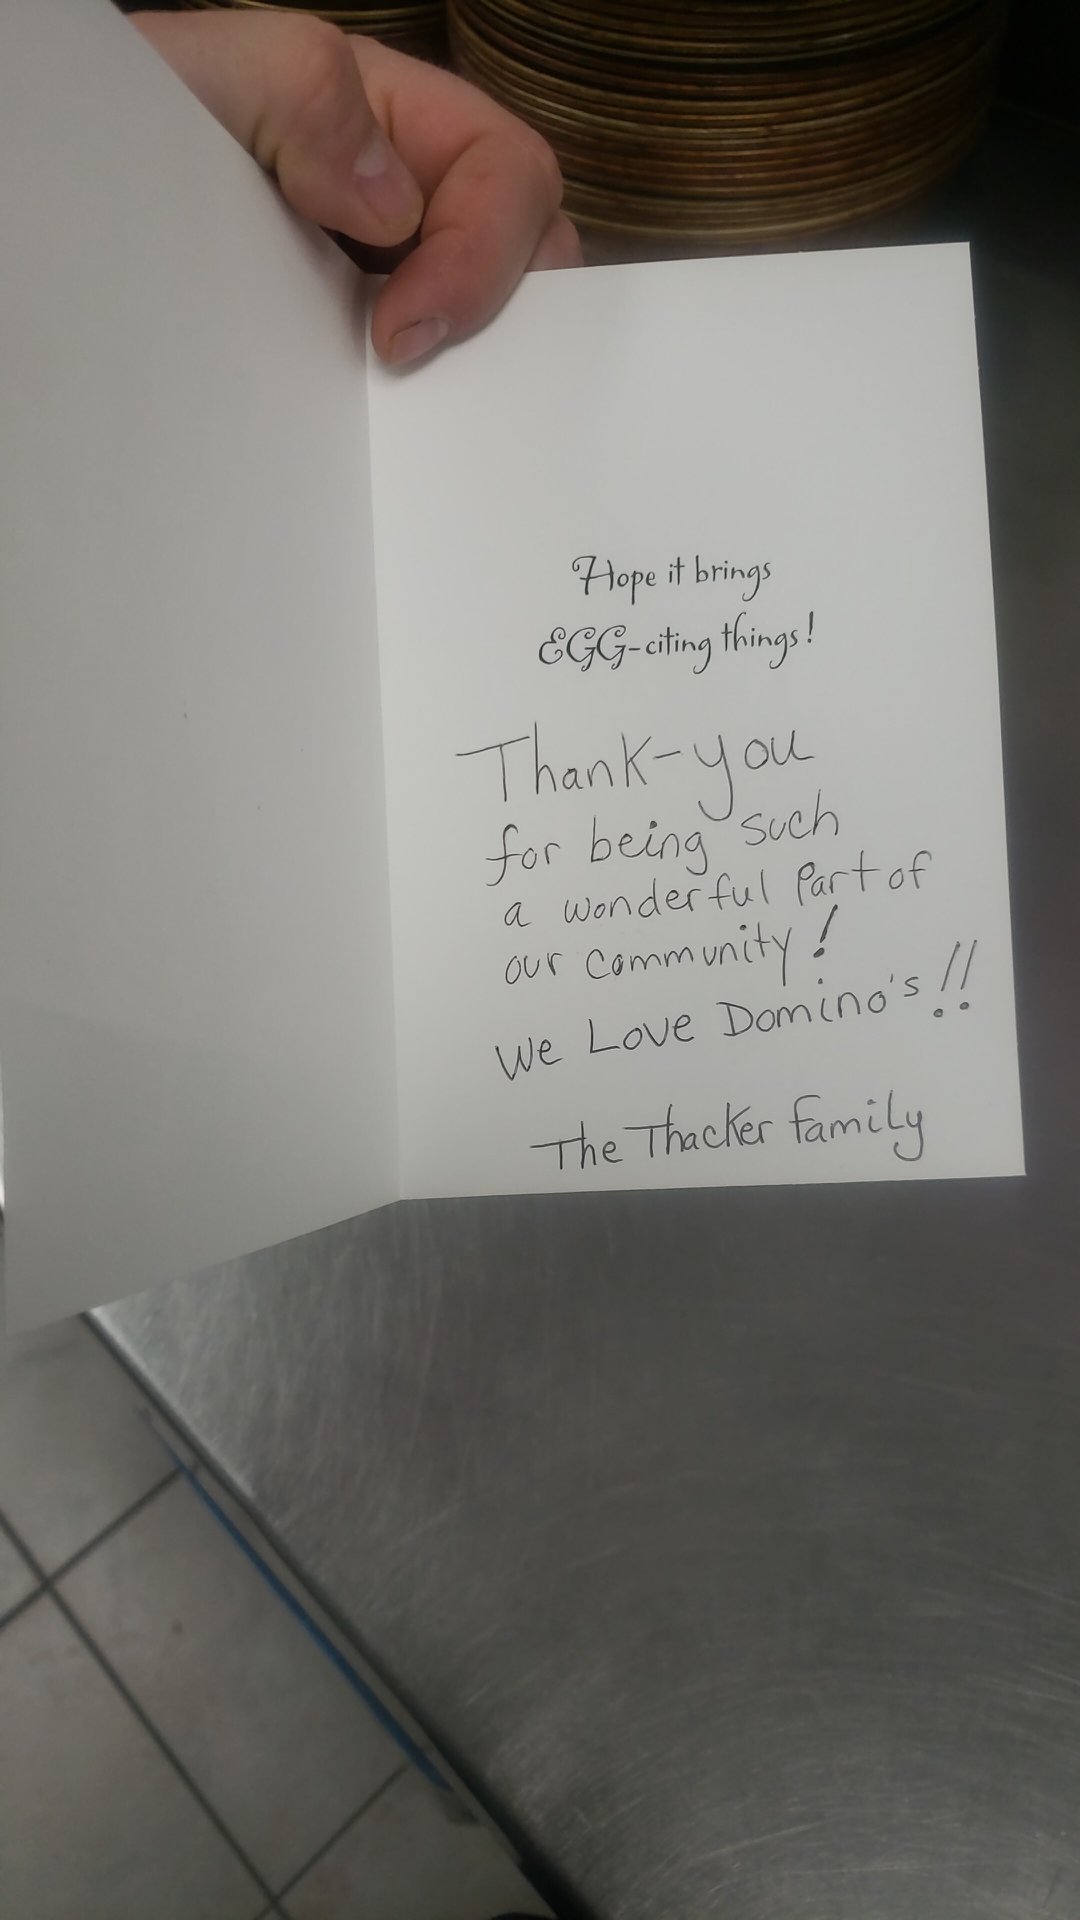 Hope it brings
EGG-citing things!
Thank-you
for being such
a wonderful Part of
our community!
We Love Domino's!!
The Thacker family